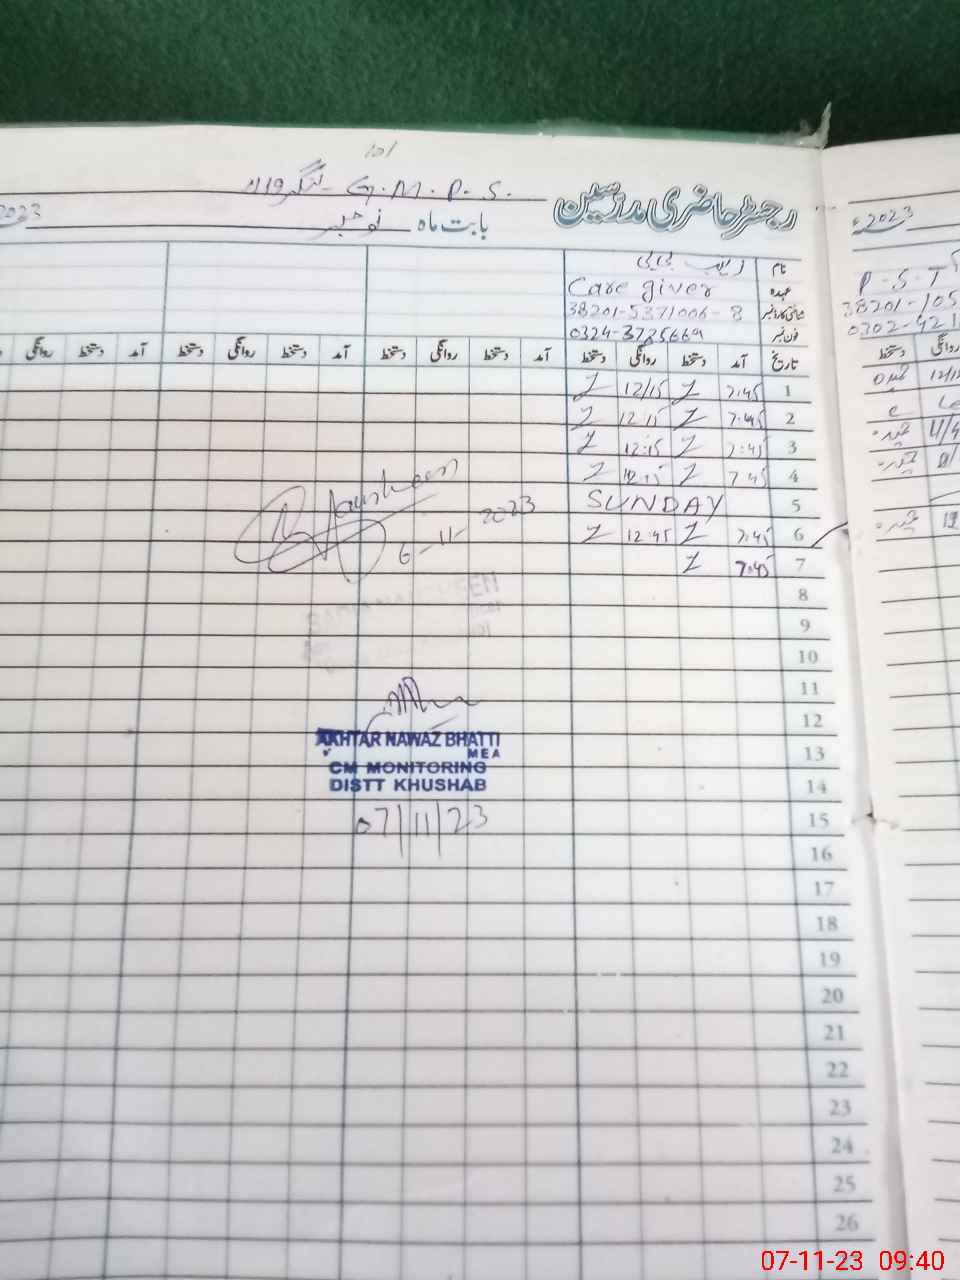 101
رجسٹر حاضری مدرسین G.M.P.S.
بابت ماہ نومبر 2023
2023ء
نام زینب بی بی
عہدہ Care giver
شناختی کارڈ نمبر 38201-5371006-8
فون نمبر 0324-3725669
P-S-T
38201-105
0302-421
تاریخ آمد دستخط روانگی دستخط آمد دستخط روانگی دستخط آمد دستخط روانگی دستخط آمد دستخط روانگی
روانگی دستخط
1 7:45 Z 12/15 Z
2 7:45 Z 12:15 Z
3 7:45 Z 12:15 Z
4 7:45 Z 12:15 Z
5 SUNDAY
6 7:45 Z 12:45 Z
7 7:45 Z
8
9
10
11
12
13
14
15
16
17
18
19
20
21
22
23
24
25
26
6-11-2023
AKHTAR NAWAZ BHATTI
MEA
CM MONITORING
DISTT KHUSHAB
07/11/23
07-11-23 09:40